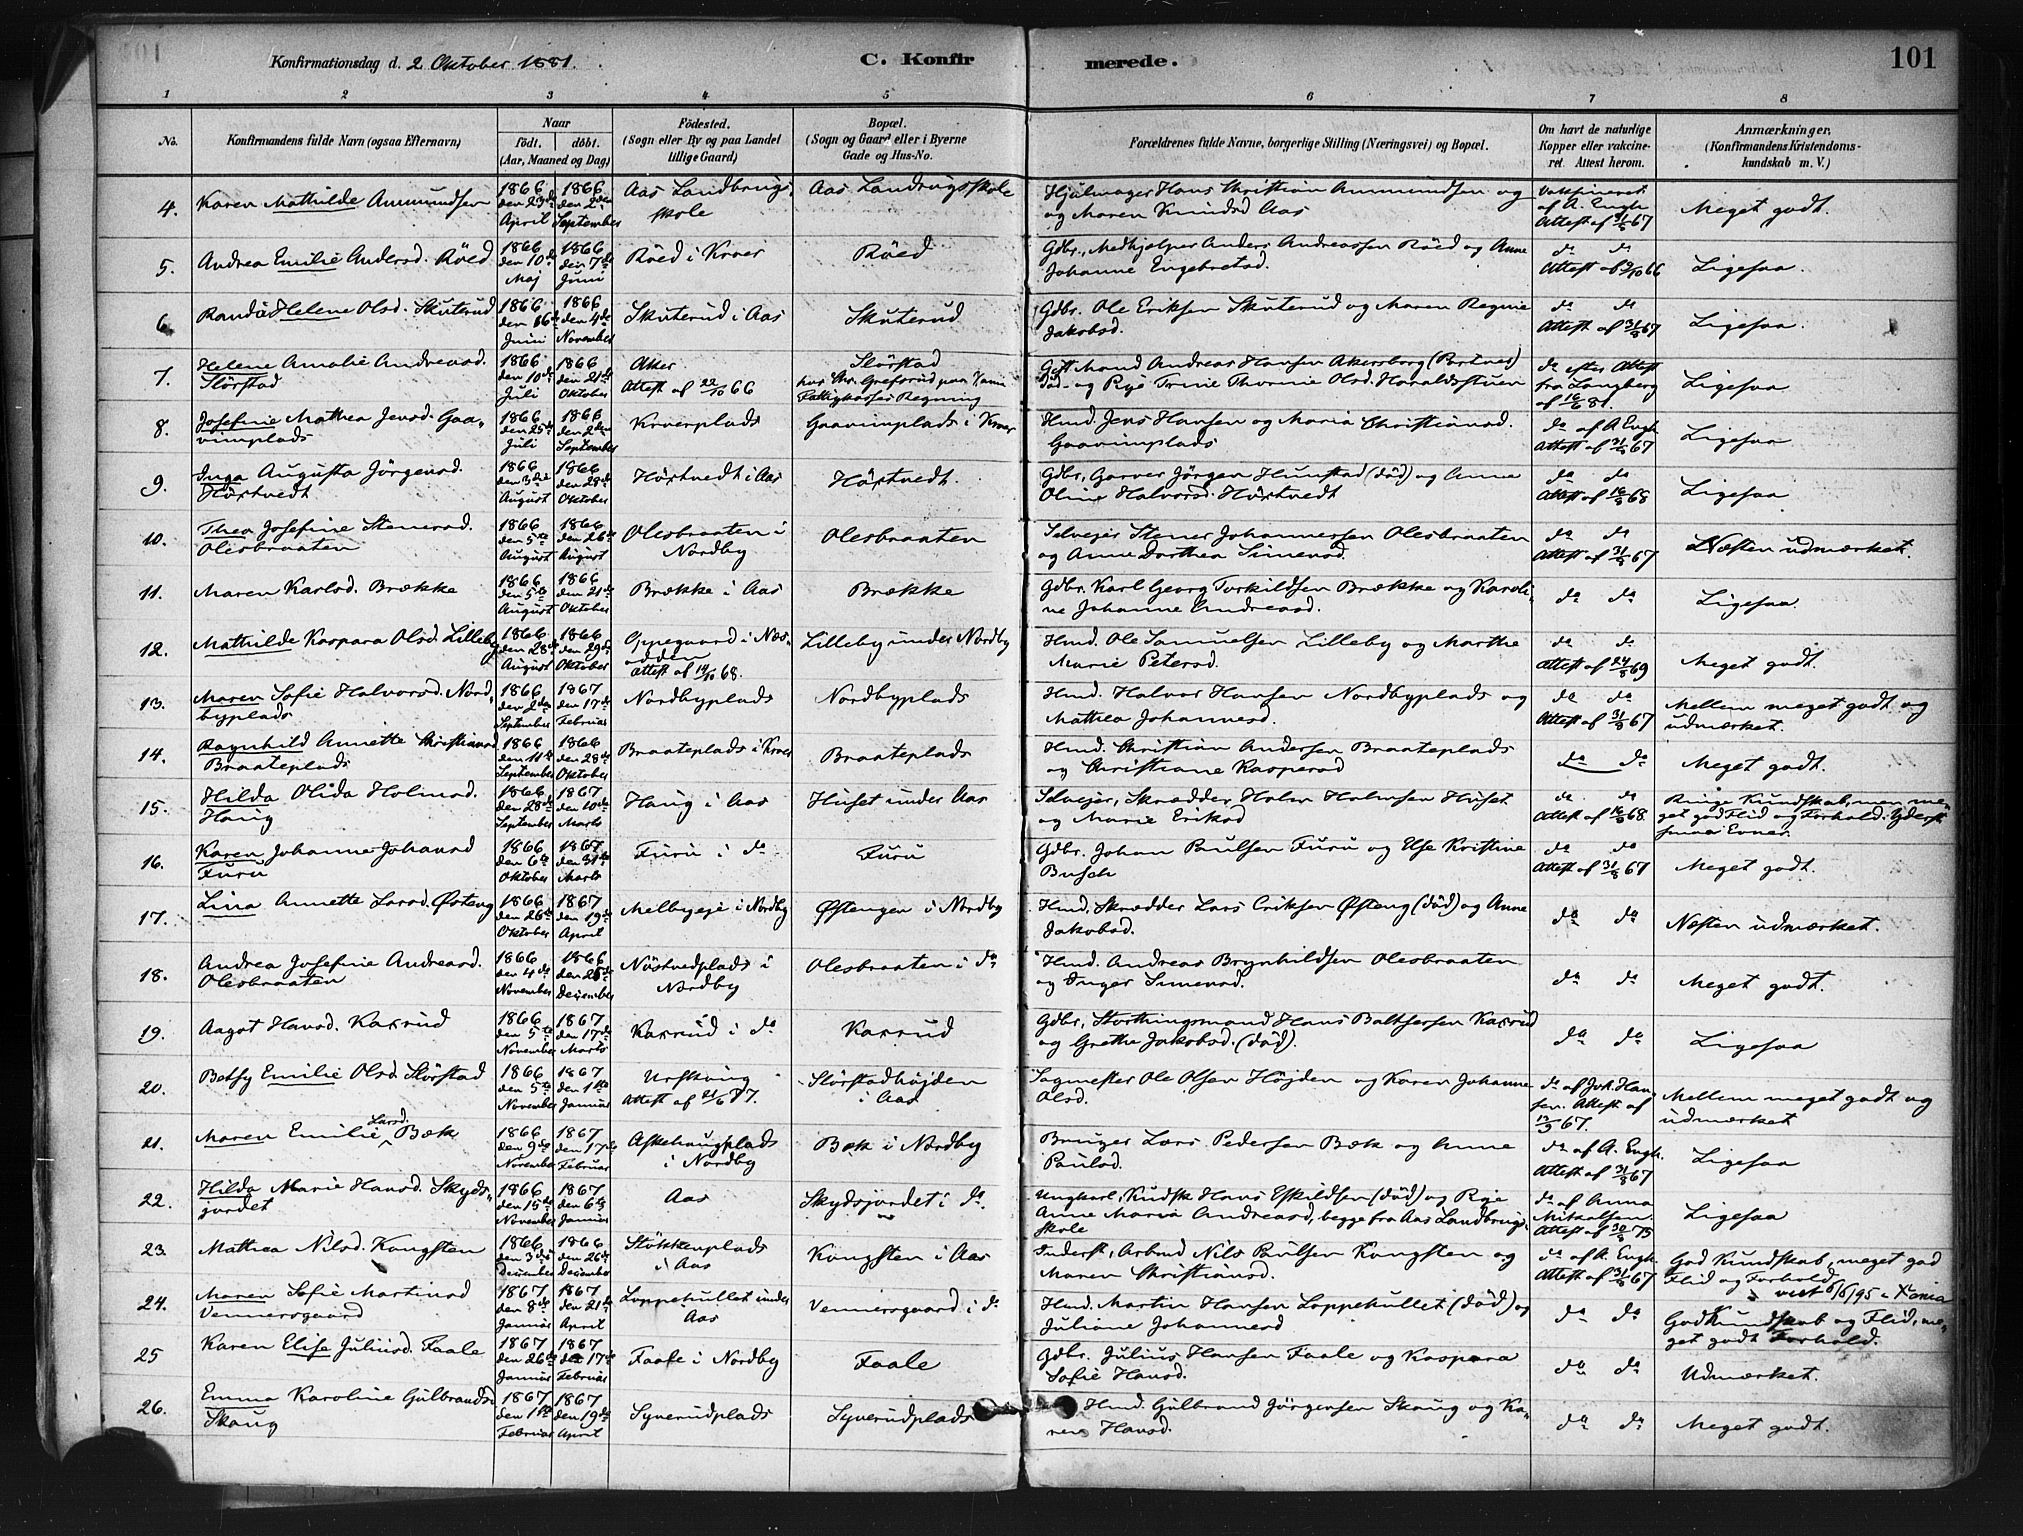 Konfirmationsdag d. 2 Oktober 1881.
C. Konfirmerede.
101
1 2 3 4 5 6 7 8
No.
Konfirmandens fulde Navn (ogsaa Efternavn)
Naar
født. døbt.
(Aar, Maaned og Dag)
Fødested.
(Sogn eller By og paa Landet
tillige Gaard)
Bopæl.
(Sogn og Gaard eller i Byerne
Gade og Hus-No.
Forældrenes fulde Navne, borgerlige Stilling (Næringsvei) og Bopæl.
Om havt de naturlige
Kopper eller vakcine-
ret. Attest herom.
Anmærkninger.
(Konfirmandens Kristendoms-
kundskab m. V.)
4. Karen Mathilde Ammundsen
1866 den 23de April
1866 den 2den September
Aas Landbrugs-
skole
Aas Landrugsskole
Hjulmager Hans Christian Ammundsen og
og Maren Knudsd Aas
Vakcineret
af A. Engh
Attest af 31/8 67
Meget godt.
5. Andrea Emilie Andersd. Röed
1866 den 10de Maj
1866 den 7de Juni
Röed i Kroer
Röed
Gdbr., Medhjælper Anders Andreassen Röed og Anne
Johanne Engebretsd.
do do
Attest af 9/10 66
Ligesaa.
6. Randi Helene Olsd. Skuterud
1866 den 16de Juni
1866 den 4de November
Skuterud i Aas
Skuterud
Gdbr. Ole Eriksen Skuterud og Maren Regine
Jakobsd.
do do
Attest af 31/8 67
Ligesaa.
7. Helene Amalie Andreasd.
Slörstad
1866 den 10de Juli
1866 den 21de Oktober
Aker
Attest af 22/10 66
Slörstad
Gift Mand Andreas Hansen Akersborg (Portner)
död. og Pige Trine Thorine Olsd. Haraldsstuen
do efter Attest
fra Langberg
af 16/6 81.
Ligesaa
8. Josefine Mathea Jensd. Gaa-
simplads
1866 den 25de Juli
1866 den 2den September
Kroerplads
Gaasimplads i Kroer
Hmd. Jens Hansen og Maria Christiansd.
Gaasimplads
do af A Engh
Attest af 31/8 67
Ligesaa
9. Inga Augusta Jörgensd.
Höstvedt
1866 den 3die August
1866 den 28de Oktober
Höstvedt i Aas
Höstvedt.
Gdbr, Garver Jörgen Hunstad (död) og Anne
Oline Halvorsd. Höstvedt
do do
Attest af 16/8 68
Ligesaa
10. Thea Josefine Stenersd.
Olesbraaten
1866 den 5te August
1866 den 26de August
Olesbraaten i
Nordby
Olesbraaten
Selvejer Stener Johannessen Olesbraaten
og Anne Dorthea Simensd.
do do
Attest af 31/8 67
Næsten udmærket.
11. Maren Karlsd. Brække
1866 den 5te August
1866 den 21de Oktober
Brække i Aas
Brække
Gdbr. Karl Georg Torkildsen Brække og Karoli-
ne Johanne Andreasd.
do do
Ligesaa.
12. Mathilde Kaspara Olsd. Lilleby
1866 den 28de August
1866 den 29de Oktober
Oppegaard i Næs-
odden
Attest af 14/10 68.
Lilleby under Nordby
Hmd. Ole Samuelsen Lilleby og Marthe
Marie Petersd.
do do
Attest af 24/8 69
Meget godt.
13. Maren Sofie Halvorsd. Nord-
byplads
1866 den 2den September
1867 den 17de Februar
Nordbyplads
Nordbyplads
Hmd. Halvor Hansen Nordbyplads og
Mathea Johannesd.
do do
Attest af 31/8 67
Mellem meget godt og
udmærket.
14. Ragnhild Annette Christiansd
Braateplads
1866 den 11te September
1866 den 28de Oktober
Braateplads i Kroer
Braateplads
Hmd. Christian Andersen Braateplads
og Christiane Kaspersd
do do
Meget godt.
15. Hilda Olida Holmsd.
Haug
1866 den 28de September
1867 den 10de Marts
Haug i Aas
Huset under Aas
Selvejer, Skrædder Holm Holmsen Huset
og Marie Eriksd
do do
Attest af 16/8 68
Ringe Kundskab, men me-
get god Flid og Forhold. Yderst
smaa Evner.
16. Karen Johanne Johansd
Furu
1866 den 6te Oktober
1867 den 31te Marts
Furu i do
Furu
Gdbr. Johan Paulsen Furu og Else Kristine
Busch
do do
Attest af 31/8 67
Meget godt.
17. Lina Annette Larsd. Østeng
1866 den 26de Oktober
1867 den 19de April
Melbyeje i Nordby
Østengen i Nordby
Hmd, Skrædder Lars Eriksen Østeng (död) og Anne
Jakobsd.
do do
Næsten udmærket.
18. Andrea Josefine Andreasd.
Olesbraaten
1866 den 4de November
1866 den 26de December
Nöstvedplads i
Nordby
Olesbraaten i do
Hmd. Andreas Brynhildsen Olesbraaten
og Inger Simensd.
do do
Meget godt.
19. Aagot Hansd. Kaxrud
1866 den 5te November
1867 den 17de Marts
Kaxrud i do
Kaxrud
Gdbr, Storthingsmand Hans Baltsersen Kaxrud
og Grethe Jakobsd. (död).
do do
Ligesaa
20. Betsy Emilie Olsd. Slörstad
1866 den 5te November
1867 den 1ste Januar
Urskoug
Attest af 21/6 77.
Slörstadhöjden
i Aas
Sagmester Ole Olsen Höjden og Karen Johanne
Olsd.
do af Joh. Han-
sen. Attest af
13/9 67.
Mellem meget godt og
udmærket
21. Maren Emilie Larsd. Bæk
1866 den 9de November
1867 den 17de Februar
Askehaugplads
i Nordby
Bæk i Nordby
Bruger Lars Pedersen Bæk og Anne
Paulsd.
do af A. Engh.
Attest af 31/8 67
Ligesaa
22. Hilda Marie Hansd. Skyds-
jordet
1866 den 15de November
1867 den 6te Januar
Aas
Skydsjordet i do.
Ungkarl, Kudsk Hans Eskildsen (död) og Pige
Anne Maria Andreasd, begge fra Aas Landbrugs-
skole
do af Anna
Mikalsen
Attest af 30/8 75
Ligesaa
23. Mathea Nilsd. Kongsten
1866 den 3die December
1866 den 26de December
Stökkenplads
i Aas
Kongsten i Aas
Inderst, Arbmd Nils Paulsen Kongsten og
Maren Christiansd.
do af A. Engh.
Attest af 31/8 67
God Kundskab, meget god
Flid og Forhold.
vist 8/6/95 - Xania
24. Maren Sofie Martinsd
Vennersgaard
1867 den 8de Januar
1867 den 21de April
Loppehullet under
Aas
Vennersgaard i do
Hmd. Martin Hansen Loppehullet (död) og
Juliane Johannesd
do do
God Kundskab og Flid, me-
get godt Forhold.
25 Karen Elise Juliusd. Faale
1867 den 26de Januar
1867 den 17de Februar
Faale i Nordby
Faale
Gdbr. Julius Hansen Faale og Kaspara
Sofie Hansd.
do do
Udmærket.
26. Emma Karoline Gulbrandsd
Skaug
1867 den 1ste Februar
1867 den 19de April
Syverudplads
Syverudplads
Hmd. Gulbrand Jörgensen Skaug og Ka-
ren Hansd.
do do
Meget godt.